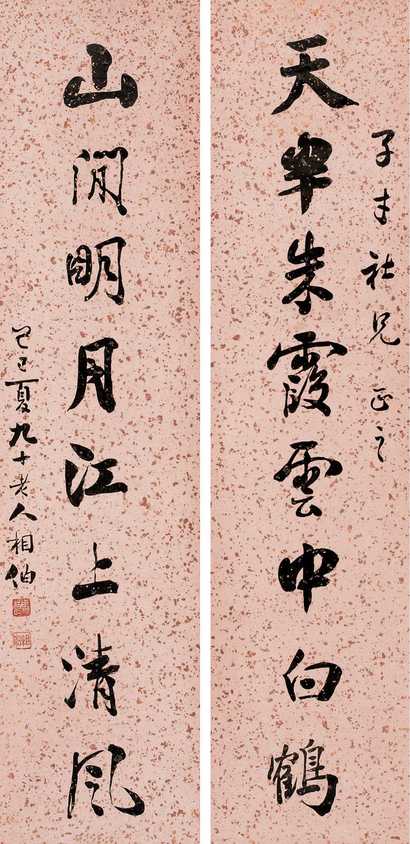 子才社兄正之
天半朱霞雲中白鶴
山間明月江上清風
己巳夏九十老人相伯